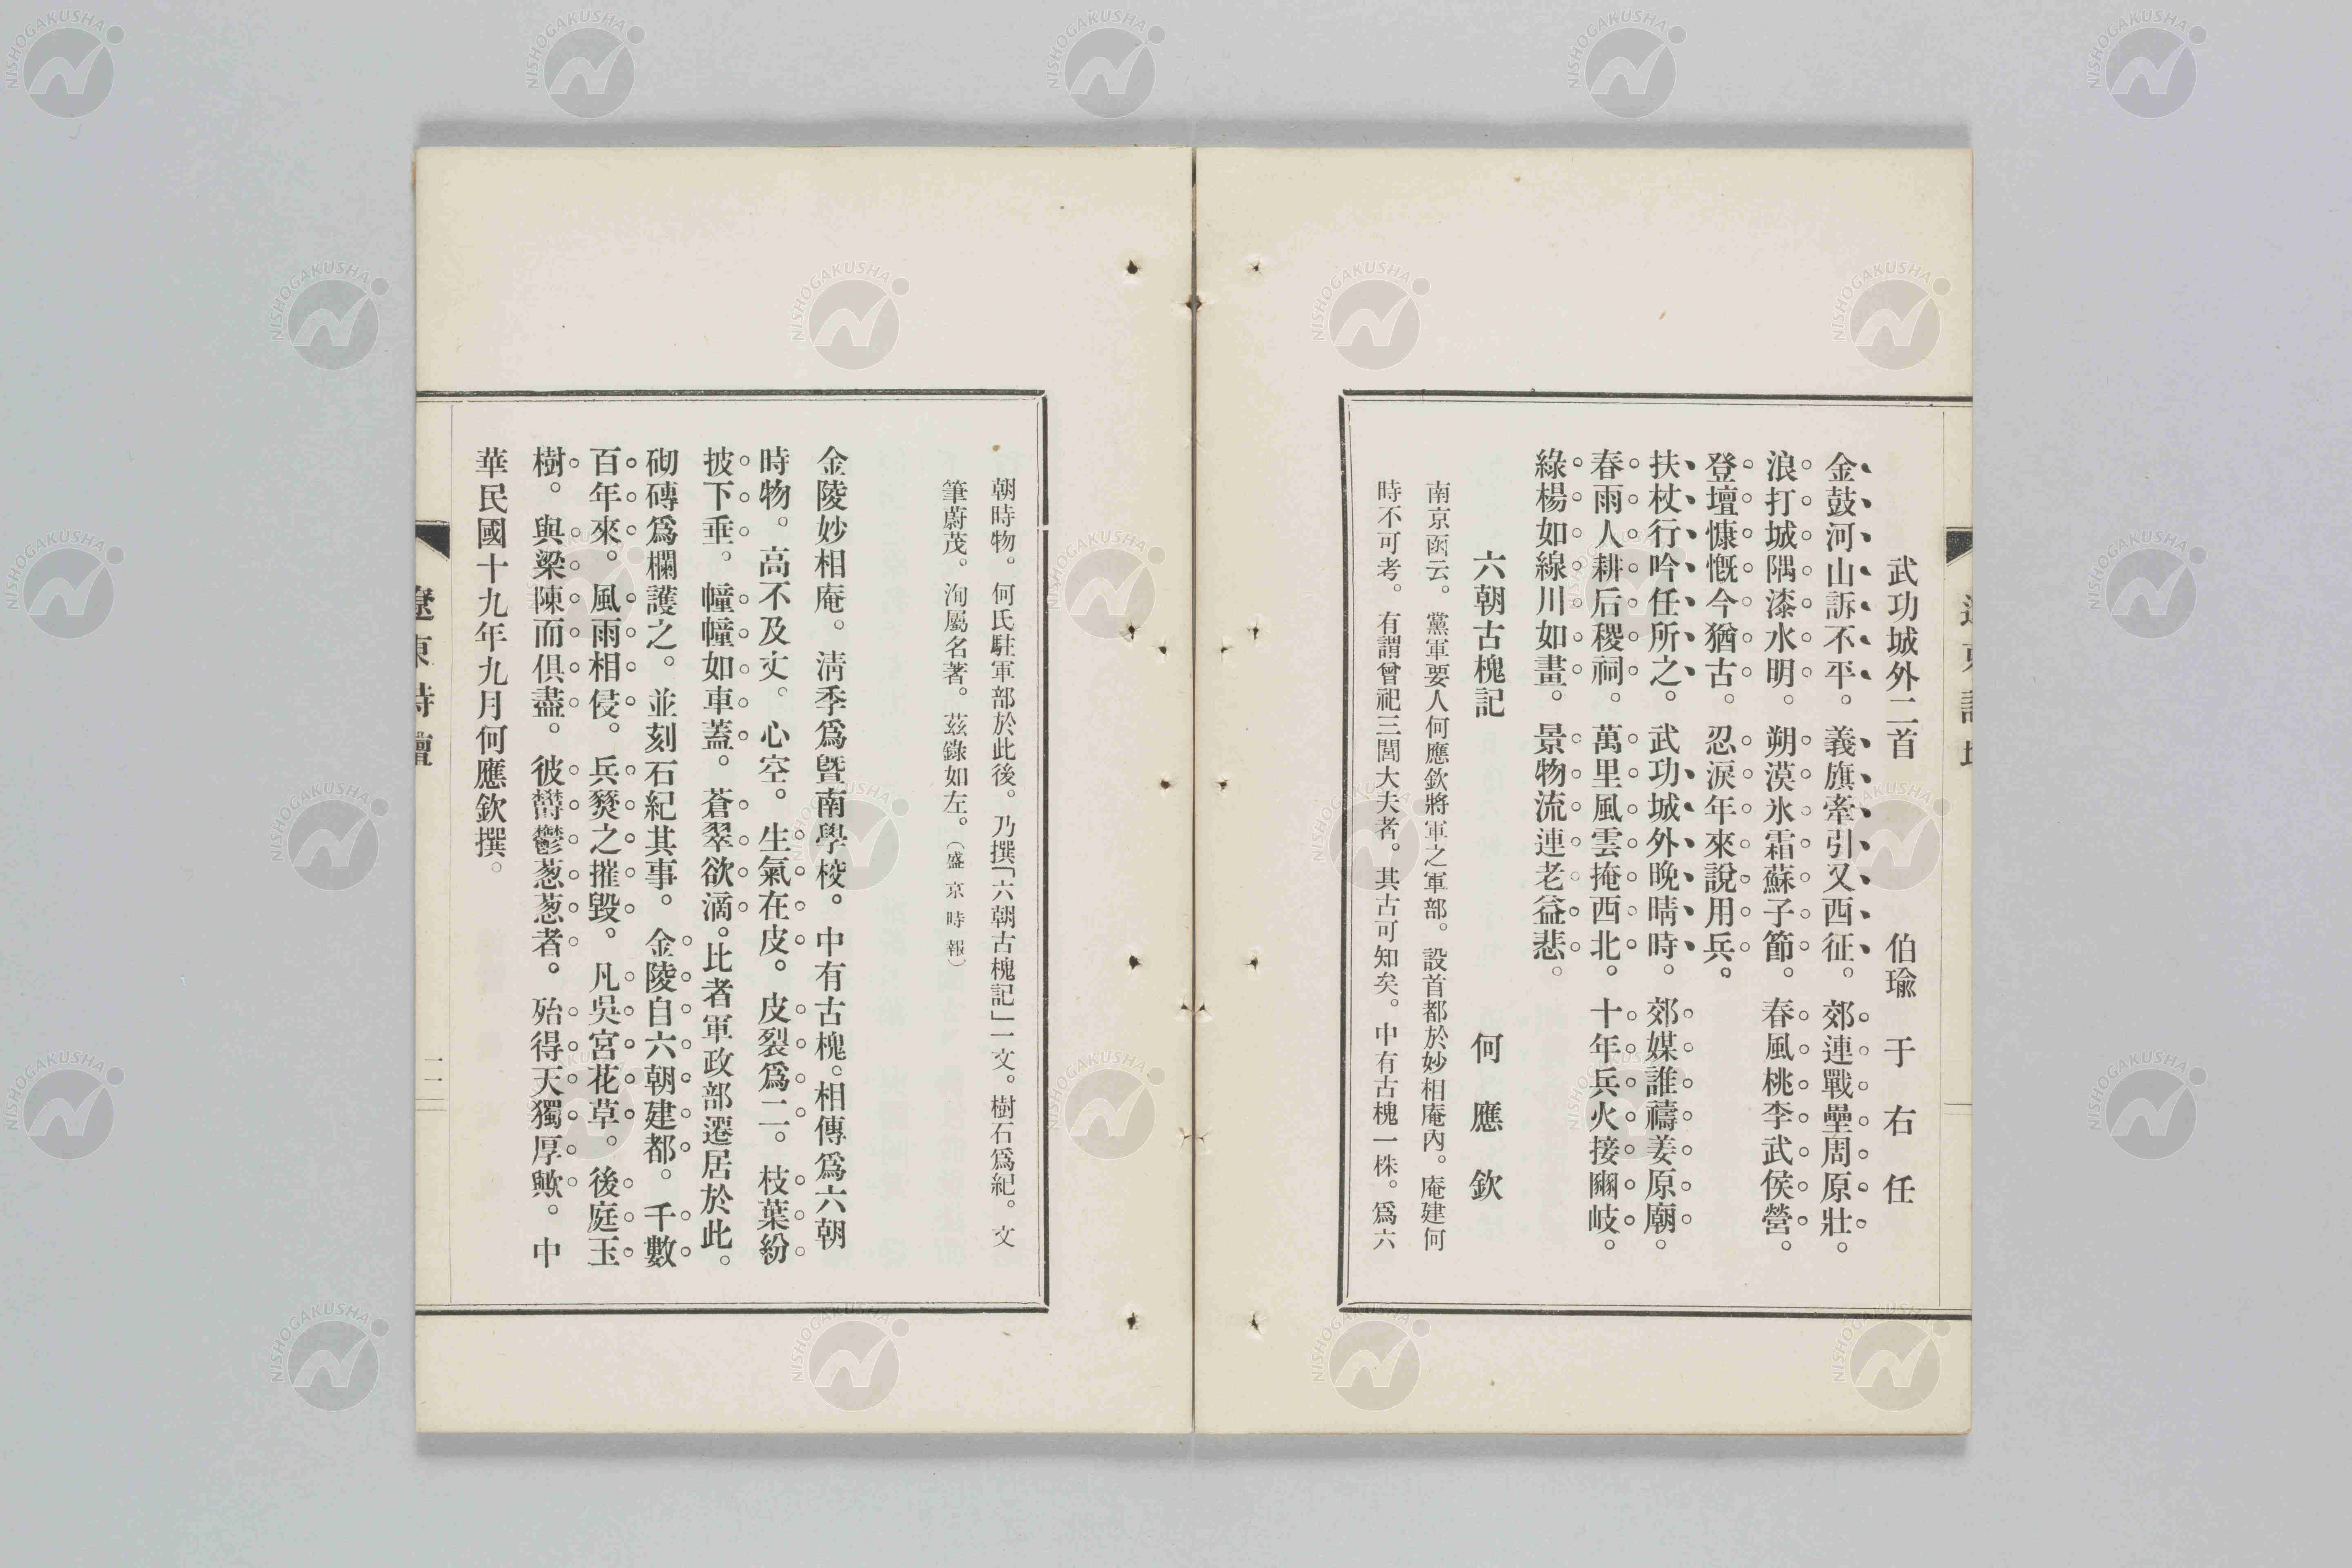 武功城外二首　伯瑜　于右任
金鼓河山訴不平。義旗牽引又西征。郊連戰壘周原壯。
浪打城隅漆水明。朔漠氷霜蘇子節。春風桃李武侯營。
登壇慷慨今猶古。忍淚年來說用兵。
扶杖行吟任所之。武功城外晚晴時。郊媒誰禱姜原廟。
春雨人耕后稷祠。萬里風雲掩西北。十年兵火接豳岐。
綠楊如線川如畫。景物流連老益悲。
六朝古槐記　何應欽
南京函云。黨軍要人何應欽將軍之軍部。設首都於妙相庵內。庵建何
時不可考。有謂曾祀三閭大夫者。其古可知矣。中有古槐一株。爲六
朝時物。何氏駐軍部於此後。乃撰「六朝古槐記」一文。樹石爲紀。文
筆蔚茂。洵屬名著。茲錄如左。（盛京時報）
金陵妙相庵。淸季爲曁南學校。中有古槐。相傳爲六朝
時物。高不及丈。心空。生氣在皮。皮裂爲二。枝葉紛
披下垂。幢幢如車蓋。蒼翠欲滴。比者軍政部遷居於此。
砌磚爲欄護之。並刻石紀其事。金陵自六朝建都。千數
百年來。風雨相侵。兵燹之摧毀。凡吳宮花草。後庭玉
樹。與梁陳而俱盡。彼欝鬱葱葱者。殆得天獨厚歟。中
華民國十九年九月何應欽撰。
遼東詩壇
一一
NISHOGAKUSHA